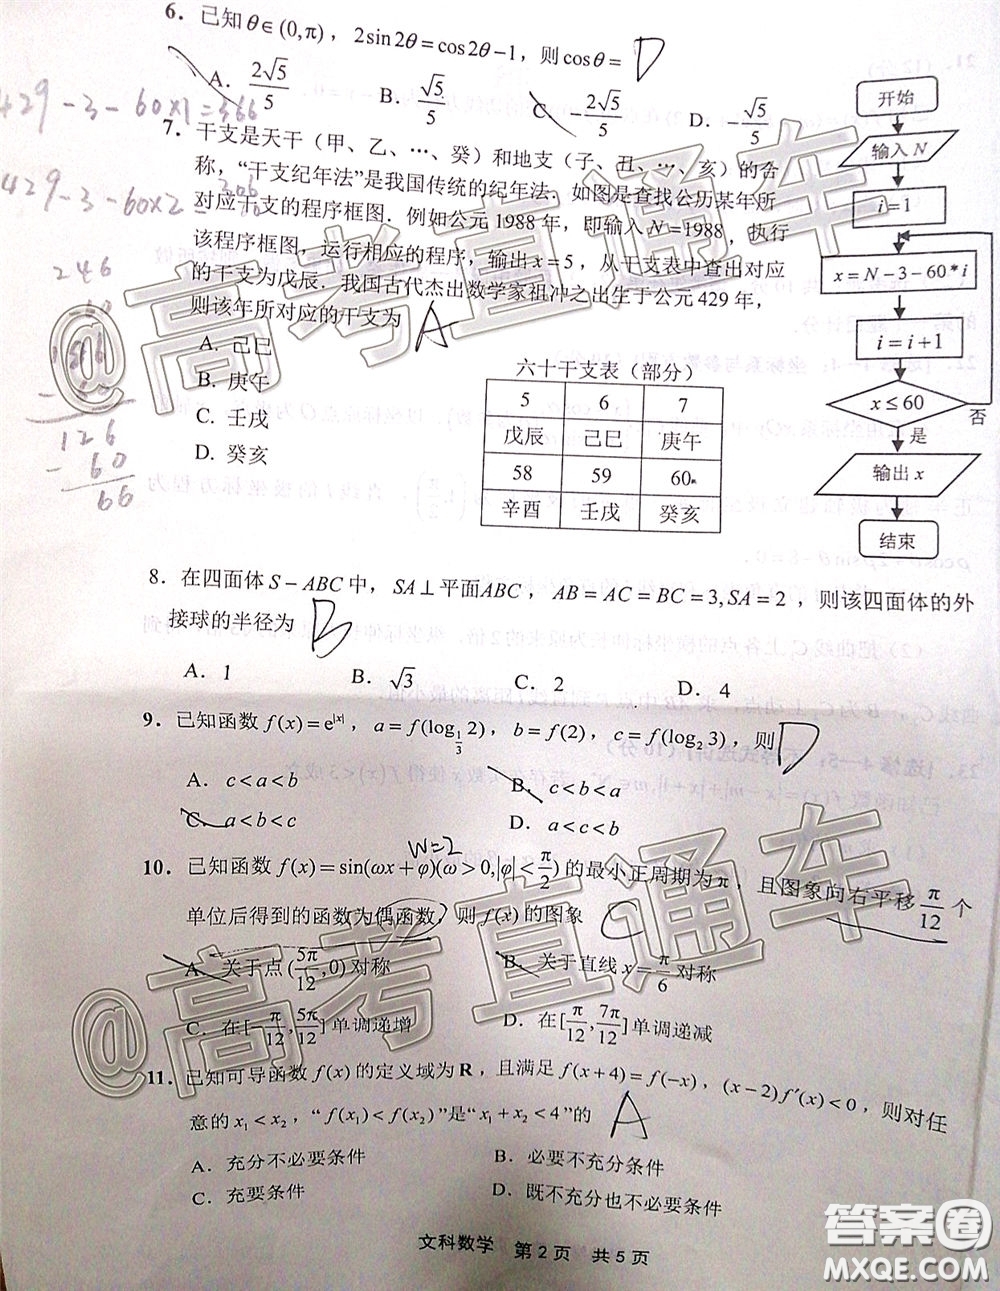 6．已知θ∈(0,π)，2sin2θ=cos2θ−1，则cosθ= D
A．2√5/5 B．√5/5 C．−2√5/5 D．−√5/5
429−3−60×1=366
7．干支是天干（甲、乙、…、癸）和地支（子、丑、…、亥）的合
称，“干支纪年法”是我国传统的纪年法．如图是查找公历某年所
429−3−60×2= 306
对应干支的程序框图．例如公元1988年，即输入N=1988，执行
该程序框图，运行相应的程序，输出x=5，从干支表中查出对应
的干支为戊辰．我国古代杰出数学家祖冲之出生于公元429年，
则该年所对应的干支为 A
A．己巳
B．庚午
C．壬戌
D．癸亥
246
60
126
60
66
六十干支表（部分）
5 6 7
戊辰 己巳 庚午
58 59 60
辛酉 壬戌 癸亥
开始
输入N
i=1
x=N−3−60*i
i=i+1
x≤60
否
是
输出x
结束
8．在四面体S−ABC中，SA⊥平面ABC，AB=AC=BC=3,SA=2，则该四面体的外
接球的半径为 B
A．1 B．√3 C．2 D．4
9．已知函数f(x)=e^|x|，a=f(log_{1/3}2)，b=f(2)，c=f(log_2 3)，则 D
A．c<a<b B．c<b<a
C．a<b<c D．a<c<b
W=2
10．已知函数f(x)=sin(ωx+φ)(ω>0,|φ|<π/2)的最小正周期为π，且图象向右平移π/12个
单位后得到的函数为偶函数，则f(x)的图象 C
A．关于点(5π/12,0)对称 B．关于直线x=−π/6对称
C．在[−π/12,5π/12]单调递增 D．在[π/12,7π/12]单调递减
11．已知可导函数f(x)的定义域为R，且满足f(x+4)=f(−x)，(x−2)f′(x)<0，则对任
意的x₁<x₂，“f(x₁)<f(x₂)”是“x₁+x₂<4”的 A
A．充分不必要条件 B．必要不充分条件
C．充要条件 D．既不充分也不必要条件
文科数学 第2页 共5页
@高考直通车
@高考直通车
答案圈
MXQE.COM